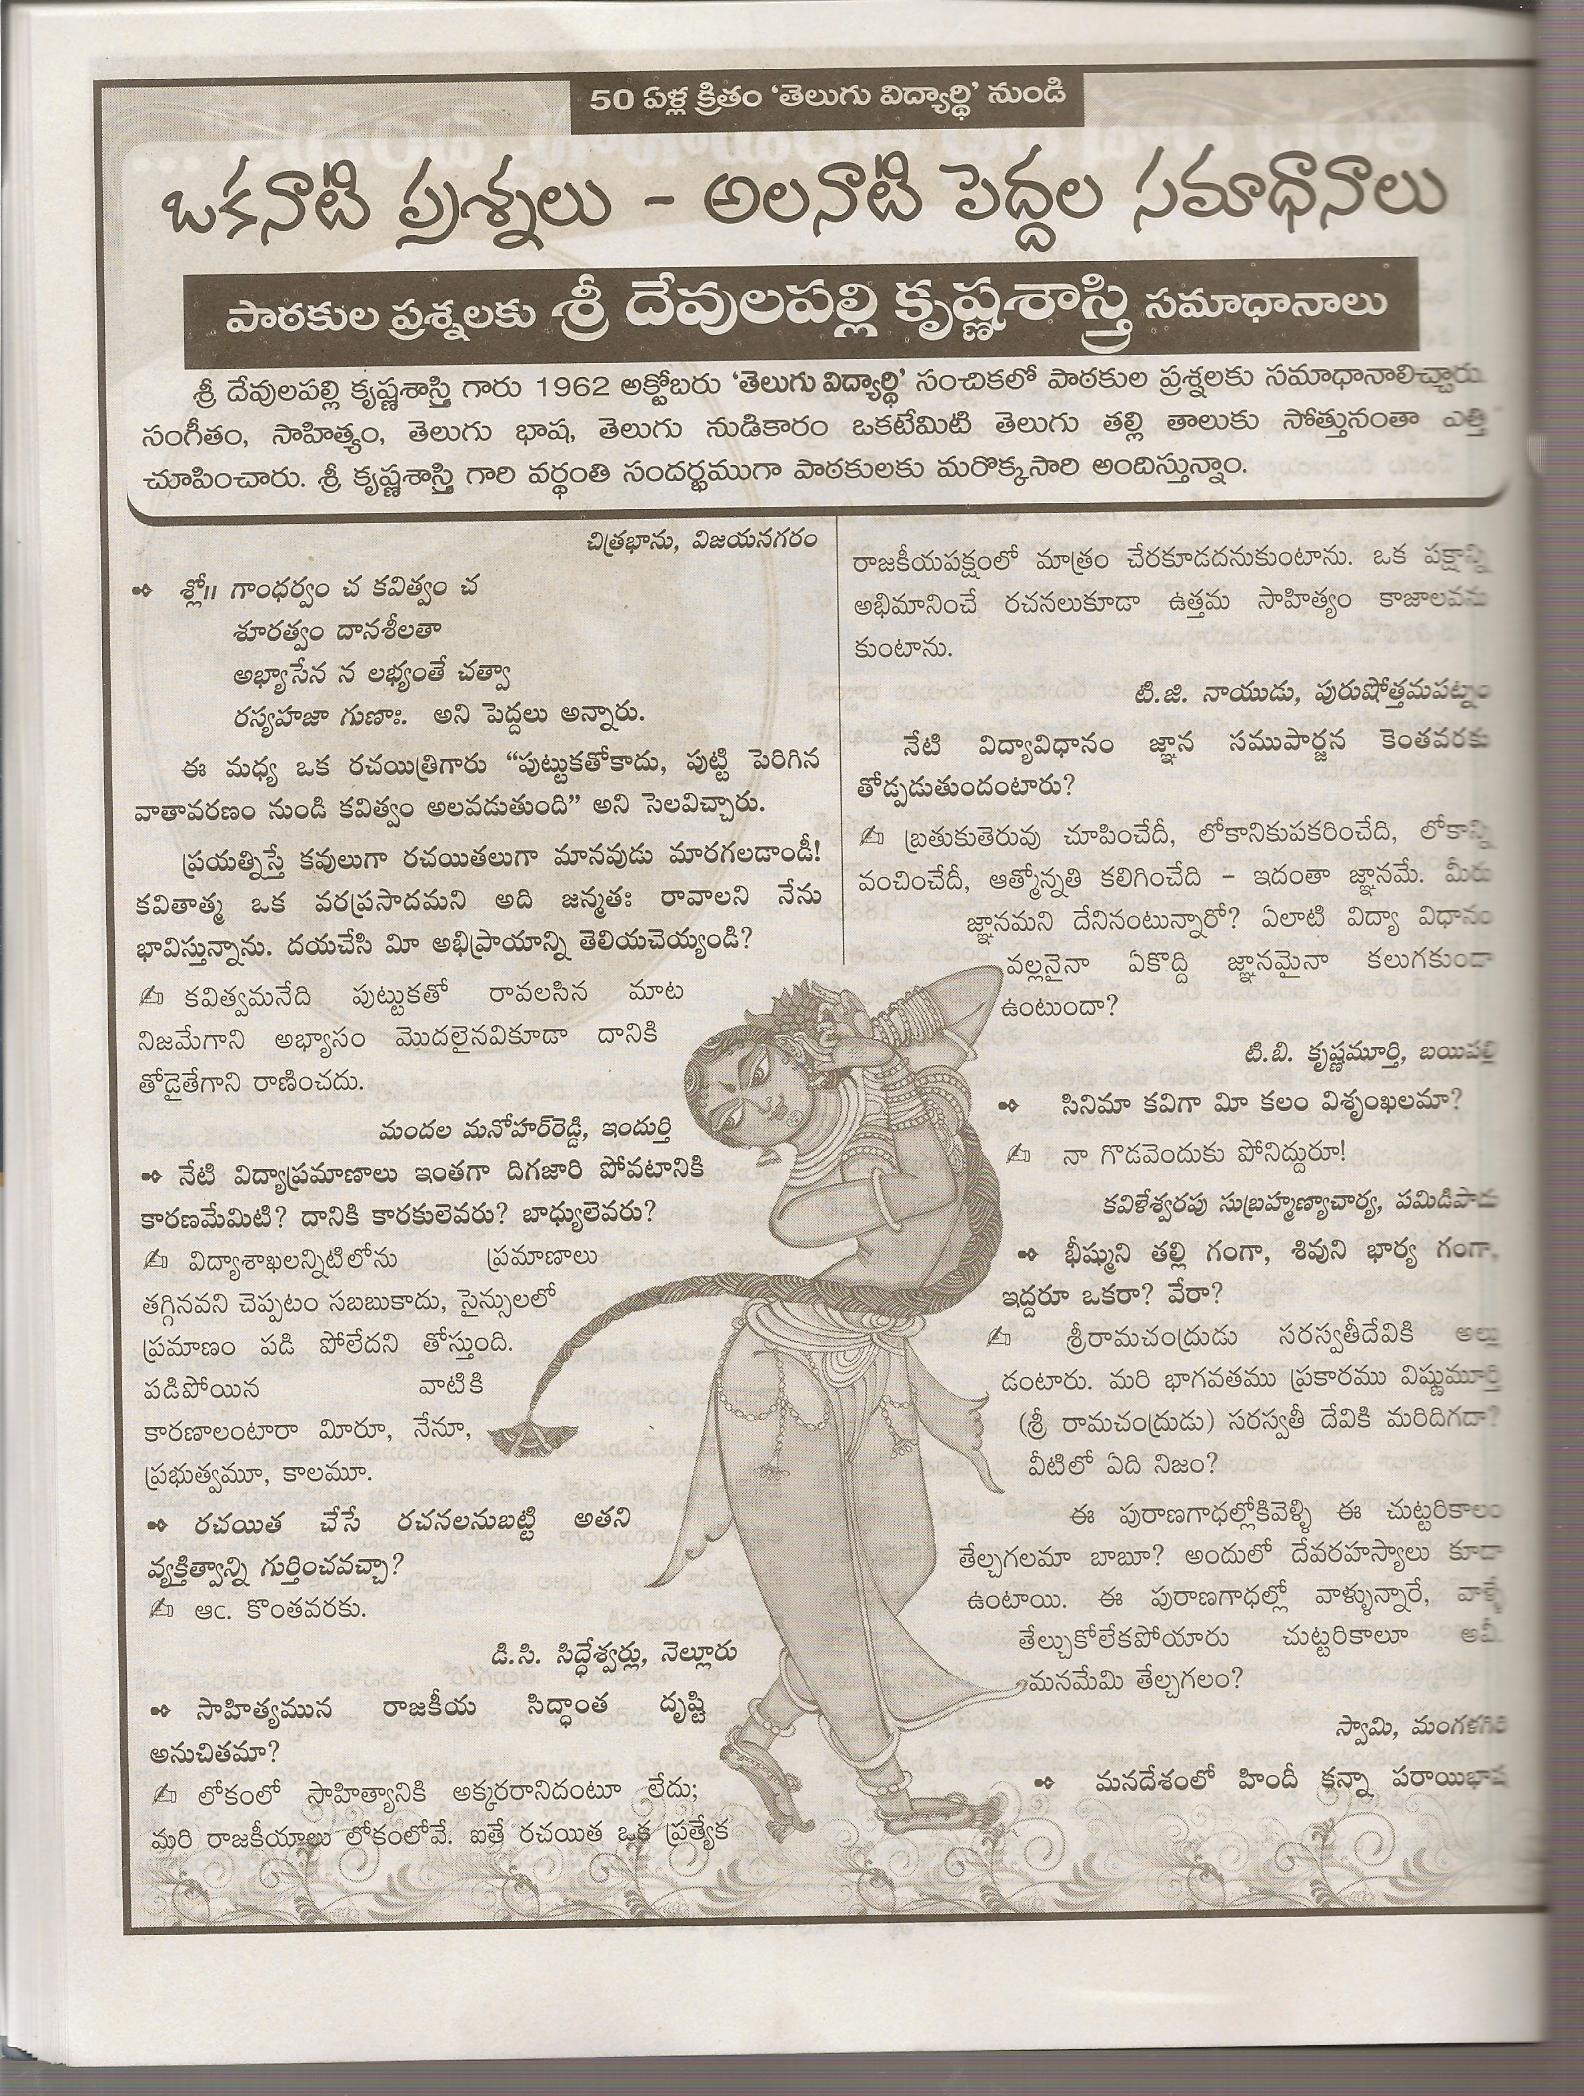 50 ఏళ్ల క్రితం ‘తెలుగు విద్యార్థి’ నుండి
ఒకనాటి ప్రశ్నలు - అలనాటి పెద్దల సమాధానాలు
పాఠకుల ప్రశ్నలకు శ్రీ దేవులపల్లి కృష్ణశాస్త్రి సమాధానాలు
శ్రీ దేవులపల్లి కృష్ణశాస్త్రి గారు 1962 అక్టోబరు ‘తెలుగు విద్యార్థి’ సంచికలో పాఠకుల ప్రశ్నలకు సమాధానాలిచ్చారు.
సంగీతం, సాహిత్యం, తెలుగు భాష, తెలుగు నుడికారం ఒకటేమిటి తెలుగు తల్లి తాలుకు సోత్తునంతా ఎత్తి
చూపించారు. శ్రీ కృష్ణశాస్త్రి గారి వర్థంతి సందర్భముగా పాఠకులకు మరొక్కసారి అందిస్తున్నాం.
చిత్రభాను, విజయనగరం
శ్లో॥ గాంధర్వం చ కవిత్వం చ
శూరత్వం దానశీలతా
అభ్యాసేన న లభ్యంతే చత్వా
రస్యహజా గుణాః. అని పెద్దలు అన్నారు.
ఈ మధ్య ఒక రచయిత్రిగారు “పుట్టుకతోకాదు, పుట్టి పెరిగిన
వాతావరణం నుండి కవిత్వం అలవడుతుంది” అని సెలవిచ్చారు.
ప్రయత్నిస్తే కవులుగా రచయితలుగా మానవుడు మారగలడాండీ!
కవితాత్మ ఒక వరప్రసాదమని అది జన్మతః రావాలని నేను
భావిస్తున్నాను. దయచేసి మీ అభిప్రాయాన్ని తెలియచెయ్యండి?
✍ కవిత్వమనేది పుట్టుకతో రావలసిన మాట
నిజమేగాని అభ్యాసం మొదలైనవికూడా దానికి
తోడైతేగాని రాణించదు.
మందల మనోహర్‌రెడ్డి, ఇందుర్తి
నేటి విద్యాప్రమాణాలు ఇంతగా దిగజారి పోవటానికి
కారణమేమిటి? దానికి కారకులెవరు? బాధ్యులెవరు?
✍ విద్యాశాఖలన్నిటిలోను ప్రమాణాలు
తగ్గినవని చెప్పటం సబబుకాదు, సైన్సులలో
ప్రమాణం పడి పోలేదని తోస్తుంది.
పడిపోయిన వాటికి
కారణాలంటారా మీరూ, నేనూ,
ప్రభుత్వమూ, కాలమూ.
రచయిత చేసే రచనలనుబట్టి అతని
వ్యక్తిత్వాన్ని గుర్తించవచ్చా?
✍ ఆఁ. కొంతవరకు.
డి.సి. సిద్ధేశ్వర్లు, నెల్లూరు
సాహిత్యమున రాజకీయ సిద్ధాంత దృష్టి
అనుచితమా?
✍ లోకంలో సాహిత్యానికి అక్కరరానిదంటూ లేదు;
మరి రాజకీయాలు లోకంలోవే. ఐతే రచయిత ఒక ప్రత్యేక
రాజకీయపక్షంలో మాత్రం చేరకూడదనుకుంటాను. ఒక పక్షాన్ని
అభిమానించే రచనలుకూడా ఉత్తమ సాహిత్యం కాజాలవను
కుంటాను.
టి.జి. నాయుడు, పురుషోత్తమపట్నం
నేటి విద్యావిధానం జ్ఞాన సముపార్జన కెంతవరకు
తోడ్పడుతుందంటారు?
✍ బ్రతుకుతెరువు చూపించేదీ, లోకానికుపకరించేది, లోకాన్ని
వంచించేదీ, ఆత్మోన్నతి కలిగించేది – ఇదంతా జ్ఞానమే. మీరు
జ్ఞానమని దేనినంటున్నారో? ఏలాటి విద్యా విధానం
వల్లనైనా ఏకొద్ది జ్ఞానమైనా కలుగకుండా
ఉంటుందా?
టి.బి. కృష్ణమూర్తి, బయిపల్లి
సినిమా కవిగా మీ కలం విశృంఖలమా?
✍ నా గొడవెందుకు పోనిద్దురూ!
కవిళేశ్వరపు సుబ్రహ్మణ్యాచార్య, పమిడిపాడు
భీష్ముని తల్లి గంగా, శివుని భార్య గంగా,
ఇద్దరూ ఒకరా? వేరా?
✍ శ్రీరామచంద్రుడు సరస్వతీదేవికి అల్లు
డంటారు. మరి భాగవతము ప్రకారము విష్ణుమూర్తి
(శ్రీ రామచంద్రుడు) సరస్వతీ దేవికి మరిదిగదా?
వీటిలో ఏది నిజం?
ఈ పురాణగాధల్లోకివెళ్ళి ఈ చుట్టరికాలం
తేల్చగలమా బాబూ? అందులో దేవరహస్యాలు కూడా
ఉంటాయి. ఈ పురాణగాధల్లో వాళ్ళున్నారే, వాళ్ళే
తేల్చుకోలేకపోయారు చుట్టరికాలూ అవీ.
మనమేమి తేల్చగలం?
స్వామి, మంగళగిరి
మనదేశంలో హిందీ కన్నా పరాయిభాష